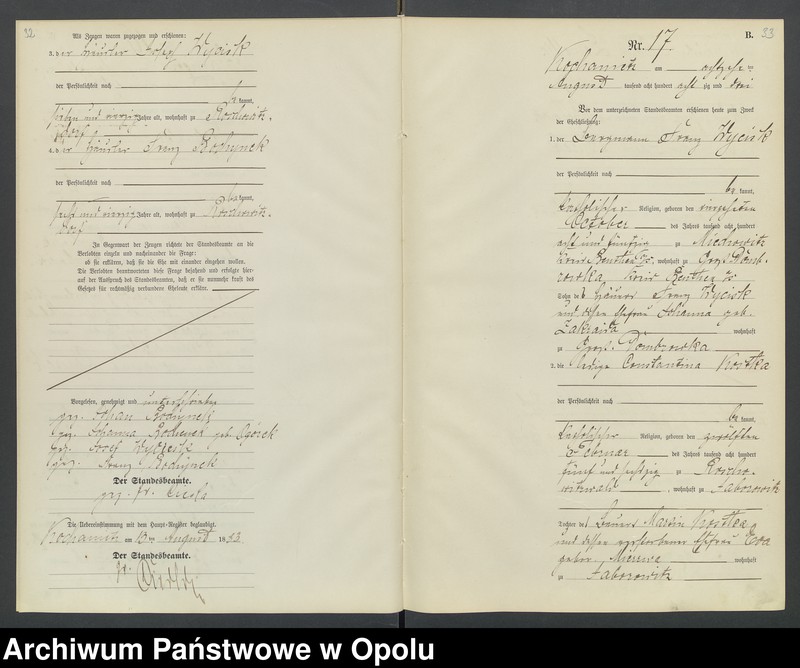 32
Als Zeugen waren zugezogen und erschienen:
3. der Häusler Josef Wycisk
der Persönlichkeit nach
be kannt,
sieben und vierzig Jahre alt, wohnhaft zu Kochowitz
dorf
4. der Häusler Franz Rochynek
der Persönlichkeit nach
be kannt,
Jahre alt, wohnhaft zu
dorf
In Gegenwart der Zeugen richtete der Standesbeamte an die
Verlobten einzeln und nacheinander die Frage:
ob sie erklären, daß sie die Ehe mit einander eingehen wollen.
Die Verlobten beantworteten diese Frage bejahend und erfolgte hier-
auf der Ausspruch des Standesbeamten, daß er sie nunmehr kraft des
Gesetzes für rechtmäßig verbundene Eheleute erkläre.
Vorgelesen, genehmigt und unterschrieben
gez. Johan Rochynek
gez. Johanna geb. Ogórek
gez. Josef
gez. Franz Rochynek
Der Standesbeamte.
gez.
Die Uebereinstimmung mit dem Haupt-Register beglaubigt.
Kochanietz am August 1883
Der Standesbeamte.
B. 33
Nr. 17.
Kochanietz am achtzehn ten
August tausend acht hundert acht zig und drei
Vor dem unterzeichneten Standesbeamten erschienen heute zum Zweck
der Eheschließung:
1. der Bergmann Franz Wycisk
der Persönlichkeit nach
be kannt,
katholischer Religion, geboren den
October des Jahres tausend acht hundert
acht und fünfzig zu Miechowitz
Kreis Beuthen O/S, wohnhaft zu Groß Domb-
rowka Kreis Beuthen O/S
Sohn des Häuers Franz Wycisk
und dessen Ehefrau Johanna geb.
wohnhaft
zu Groß Dombrowka
2. die ledige Constantina Kostka
der Persönlichkeit nach
be kannt,
katholischer Religion, geboren den zwölften
Februar des Jahres tausend acht hundert
fünf und sechzig zu Rocho-
witzwald, wohnhaft zu Jaborowitz
Tochter des Bauers Martin Kostka
und dessen verstorbenen Ehefrau Eva
gebor. wohnhaft
zu Jaborowitz
Archiwum Państwowe w Opolu